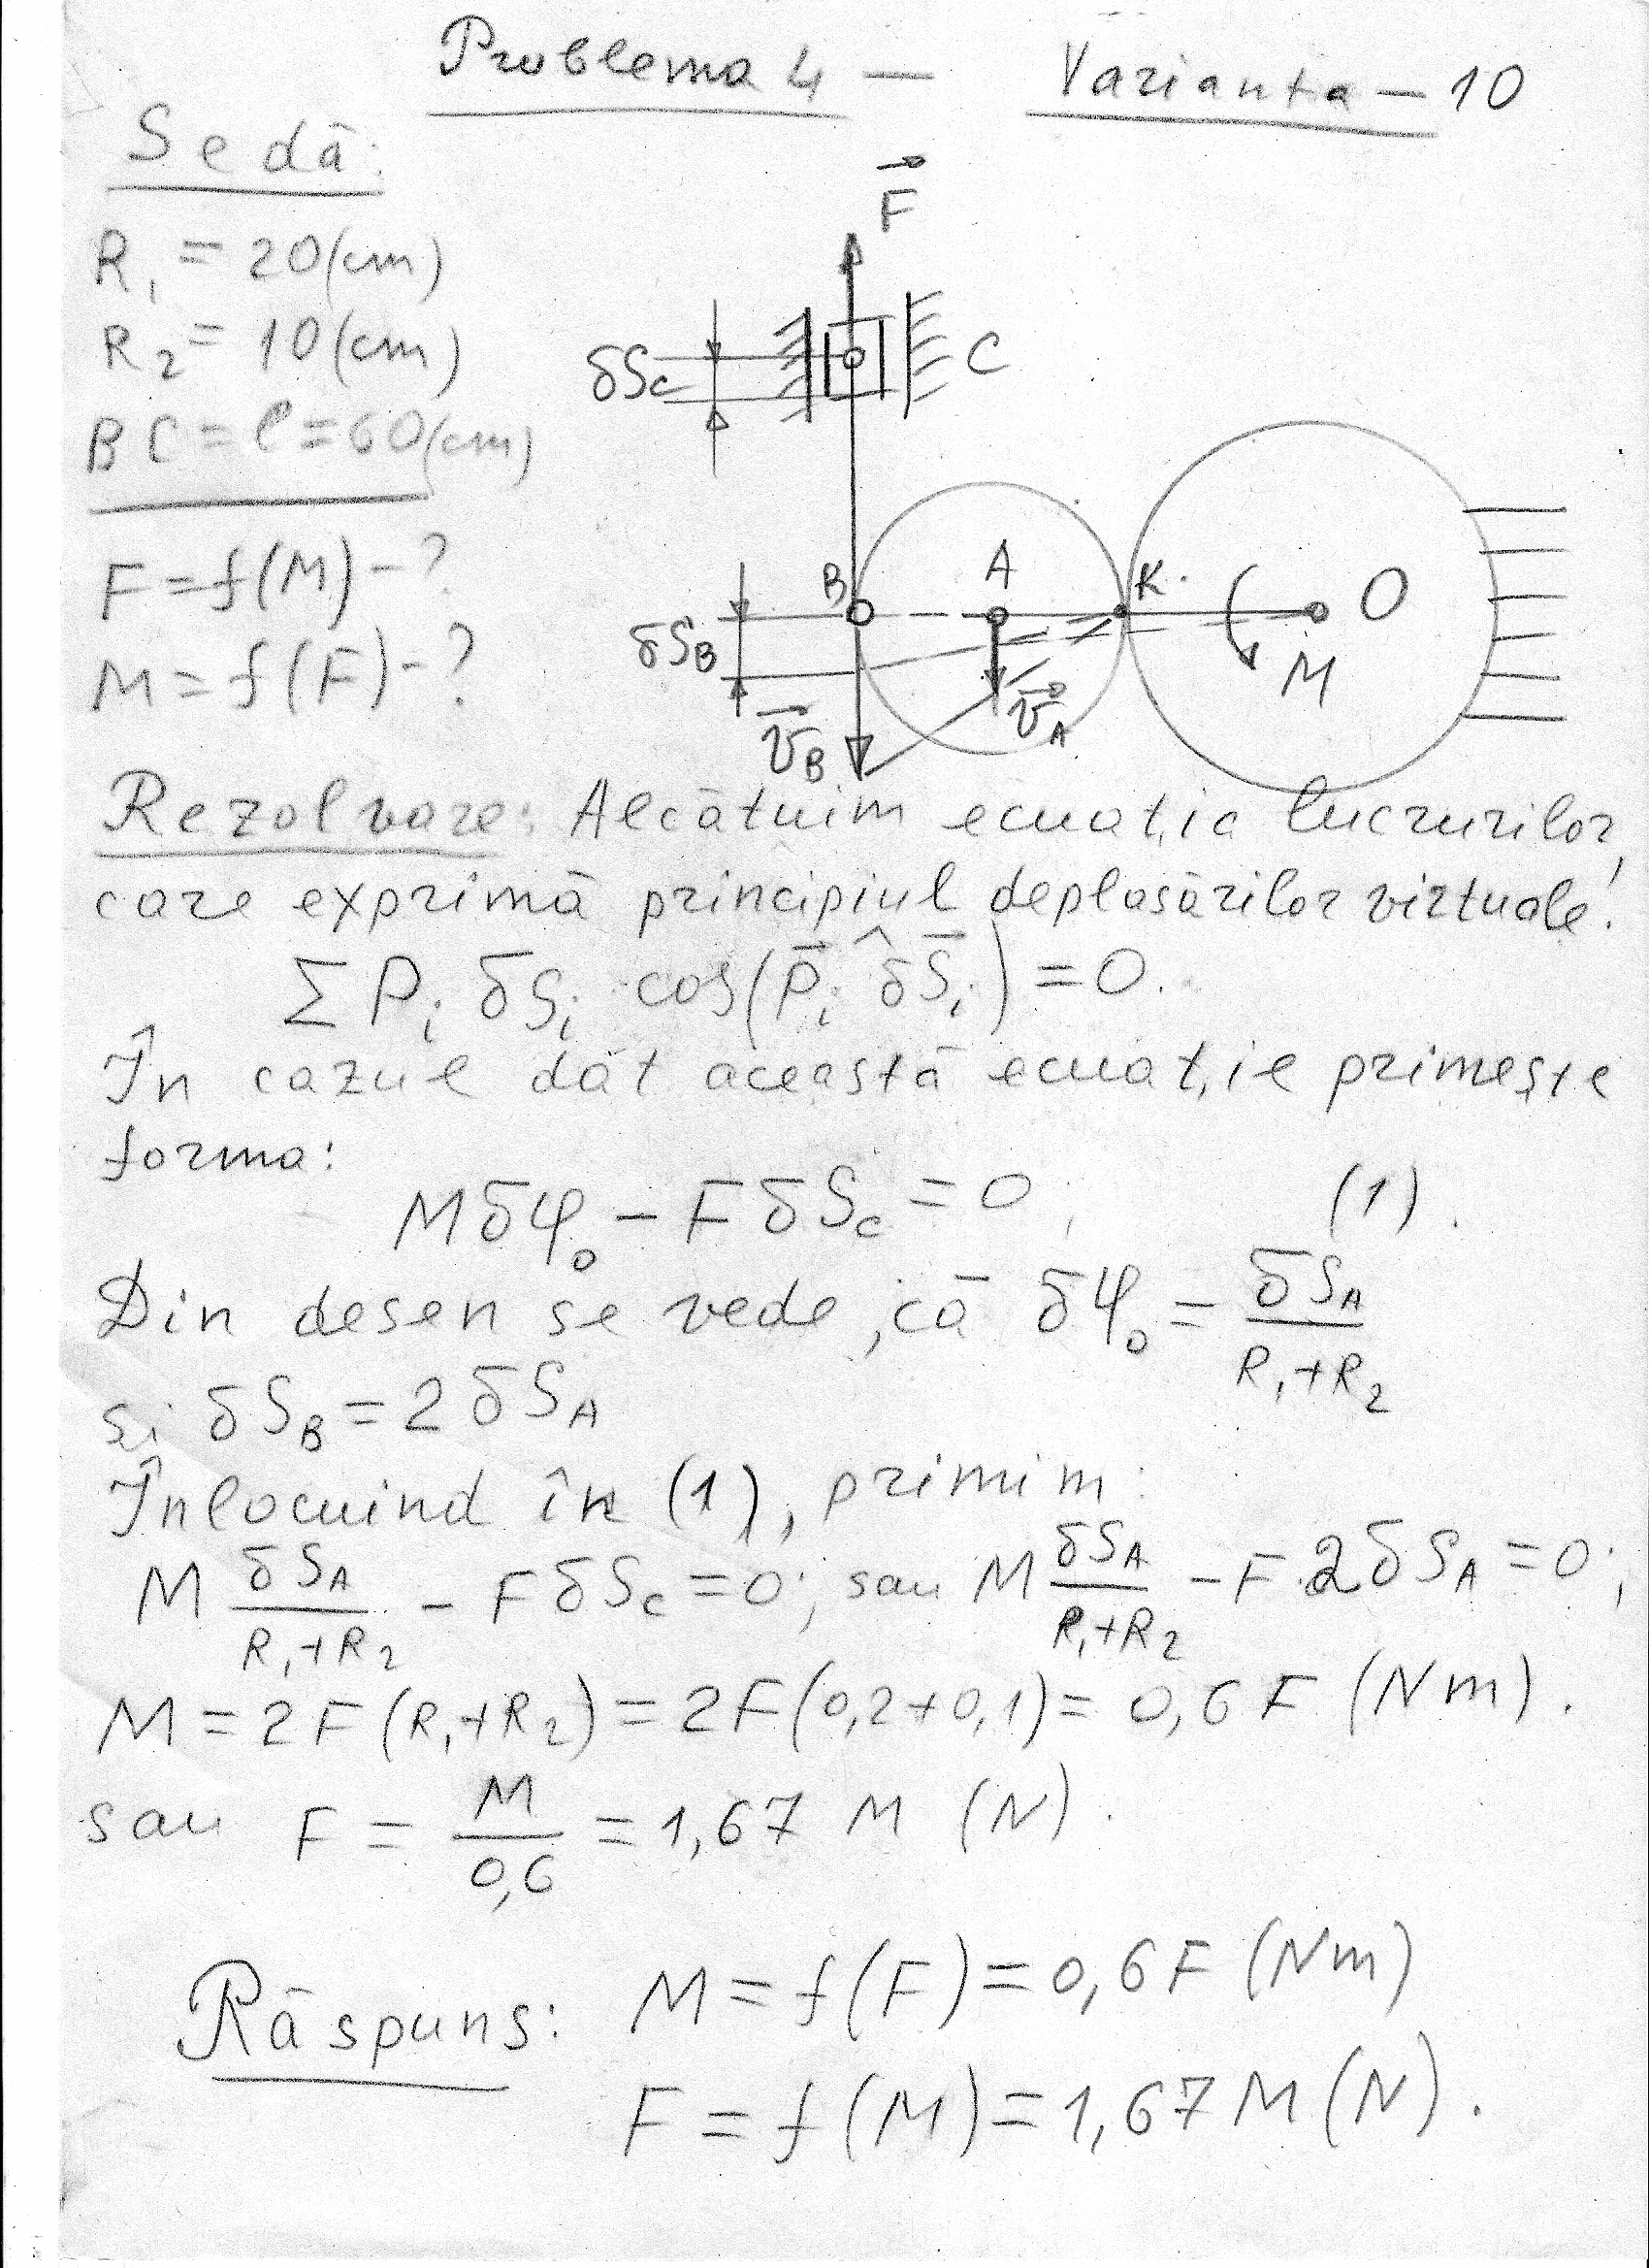 Problema 4 — Varianta – 10
Se dă:
R₁ = 20 (cm)
R₂ = 10 (cm)
BC = ℓ = 60 (cm)
F = f(M) - ?
M = f(F) - ?
F⃗
δS_C
C
B
A
K
O
δS_B
M
v⃗_B
v⃗_A
Rezolvare: Alcătuim ecuația lucrurilor,
care exprimă principiul deplasărilor virtuale:
Σ Pᵢ δSᵢ cos(P̄ᵢ ^ δS̄ᵢ) = 0.
În cazul dat această ecuație primește
forma:
Mδφ₀ – F δS_C = 0; (1).
Din desen se vede, că δφ₀ = δS_A / (R₁+R₂)
si δS_B = 2 δS_A
Înlocuind în (1), primim:
M δS_A / (R₁+R₂) – F δS_C = 0; sau M δS_A / (R₁+R₂) – F·2δS_A = 0;
M = 2F(R₁+R₂) = 2F(0,2+0,1) = 0,6F (Nm).
sau F = M / 0,6 = 1,67 M (N).
Răspuns: M = f(F) = 0,6F (Nm)
F = f(M) = 1,67 M (N).